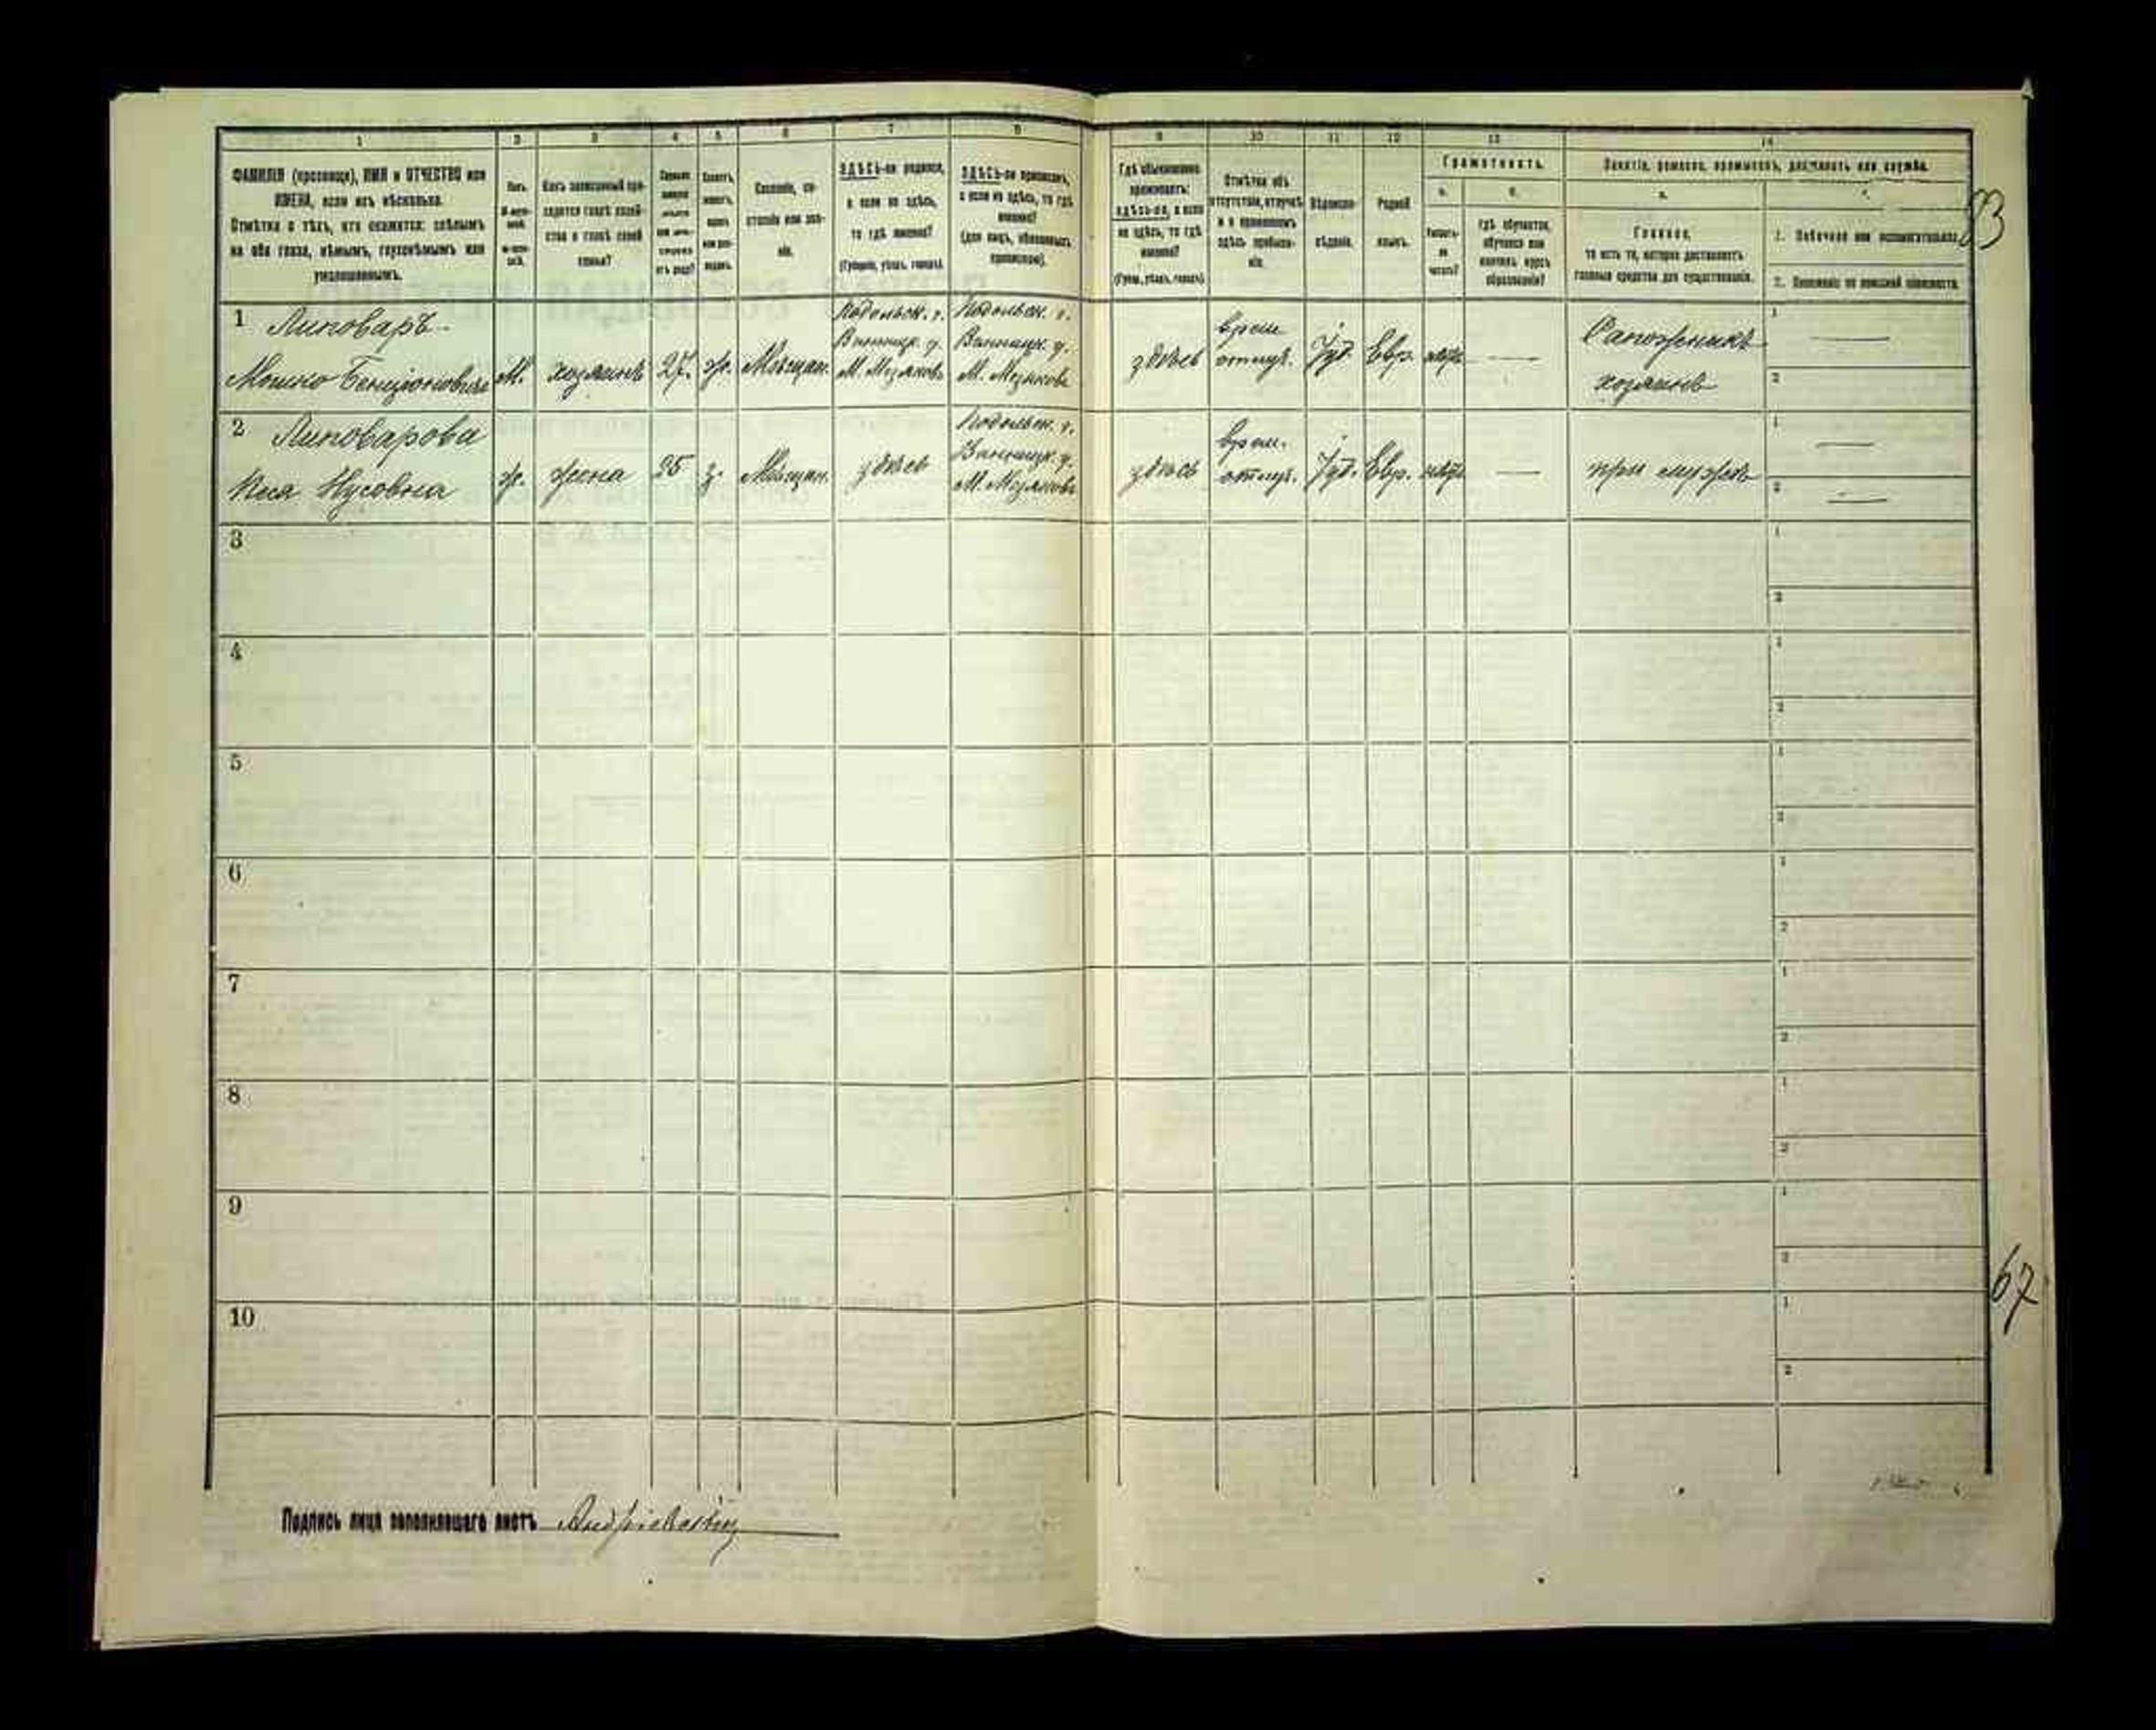 1 2 3 4 5 6 7 8 9 10 11 12 13 14
ФАМИЛІЯ (прозвище), ИМЯ и ОТЧЕСТВО или
ИМЕНА, если ихъ нѣсколько.
Отмѣтка о тѣхъ, кто окажется: слѣпымъ
на оба глаза, нѣмымъ, глухонѣмымъ или
умалишеннымъ.
Полъ.
Какъ записанный при-
ходится главѣ хозяй-
ства и главѣ своей
семьи?
Сословіе, со-
стояніе или зва-
ніе.
ЗДѢСЬ-ли родился,
а если не здѣсь,
то гдѣ именно?
(Губернія, уѣздъ, городъ).
ЗДѢСЬ-ли приписанъ,
а если не здѣсь, то гдѣ
именно?
(для лицъ, обязанныхъ
припискою).
Гдѣ обыкновенно
проживаетъ:
здѣсь-ли, а если
не здѣсь, то гдѣ
именно?
(Губер., уѣздъ, городъ).
Отмѣтка объ
отсутствіи, отлучкѣ
и о временномъ
здѣсь пребыва-
ніи.
Вѣроиспо-
вѣданіе.
Родной
языкъ.
Грамотность.
а. б.
Умѣетъ-
ли
читать?
гдѣ обучается,
обучался или
кончилъ курсъ
образованія?
Занятіе, ремесло, промыселъ, должность или служба.
а.
Главное,
то есть то, которое доставляетъ
главныя средства для существованія.
1. Побочное или вспомогательное.
2. Положеніе по воинской повинности.
83
1 Липоваръ
Мошко Бенціоновичъ
М.
хозяинъ
27.
ж.
Мѣщан.
Подольск. г.
Винницк. у.
М. Мизяковъ
Подольск. г.
Винницк. у.
М. Мизяковъ
здѣсь
врем.
отлуч.
Іуд.
Евр.
нѣтъ
—
Сапожникъ
хозяинъ
1 —
2
2 Липоварова
Нуcовна
ж.
жена
25
з.
Мѣщан.
здѣсь
Подольск. г.
Винницк. у.
М. Мизяковъ
здѣсь
врем.
отлуч.
Іуд.
Евр.
нѣтъ
—
при мужѣ
1 —
2 —
3
1
2
4
1
2
5
1
2
6
1
2
7
1
2
8
1
2
9
1
2
10
1
2
67
Подпись лица заполнявшаго листъ